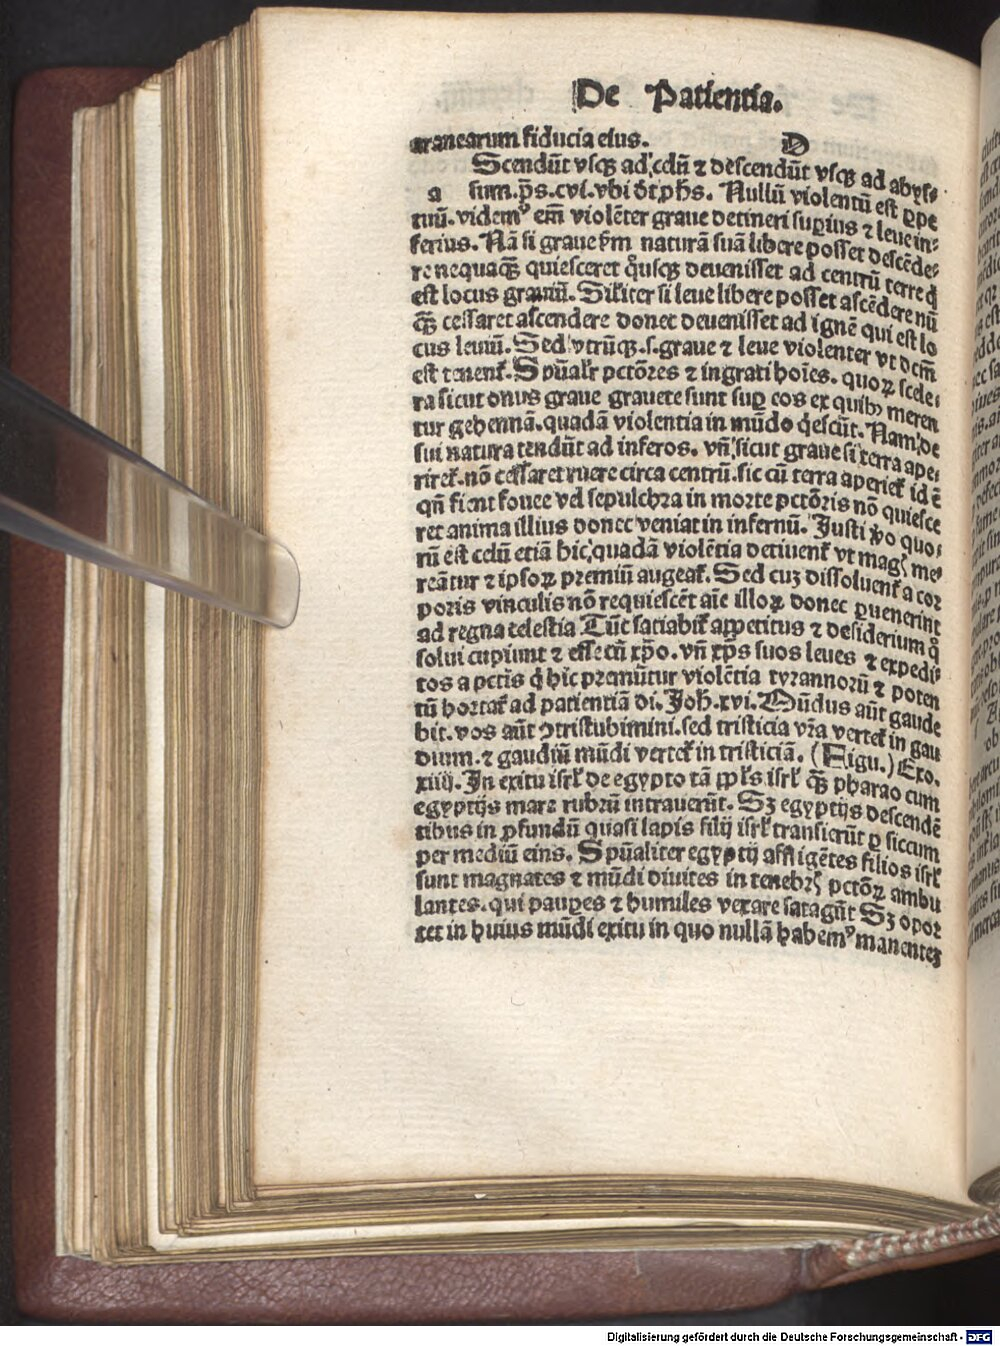 De Patientia.
aranearum fiducia eius. D
Scendūt vsqꝫ ad celū ⁊ descendūt vsqꝫ ad abys-
a sum.p̄s.cvi.vbi dt̄ phs. Nullū violentū est ꝑpe
tuū. videmꝰ em̄ violēter graue detineri suꝑius ⁊ leue in-
ferius. Nā si graue fm naturā suā libere posset descēde-
re nequaqꝫ̄ quiesceret qͦusqꝫ deuenisset ad centrū terre q̄
est locus grauiū. Silꝭiter si leue libere posset ascēdere nū
qꝫ̄ cessaret ascendere donec deuenisset ad ignē qui est lo
cus leuiū. Sed vtrūqꝫ.s.graue ⁊ leue violenter vt dcm̄
est tenentꝭ. Spūalꝭr pctōres ⁊ ingrati hoīes. quoꝝ scele-
ra sicut onus graue grauete sunt suꝑ eos ex quibꝰ meren
tur gehennā. quadā violentia in mūdo q̄escūt. Nam de
sui natura tendūt ad inferos. vn̄ sicut graue si terra ape-
riretꝭ. nō cessaret ruere circa centrū. sic cū terra aperietꝭ id ē
qn̄ fient fouee vel sepulchra in morte pctōris nō quiesce
ret anima illius donec veniat in infernū. Justi ꝟo quo-
rū est celū etiā hic quadā violētia detinentꝭ vt magꝭ me-
reātur ⁊ ipsoꝝ premiū augeatꝭ. Sed cuꝫ dissoluentꝭ a cor
poris vinculis nō requiescēt aīe illoꝝ donec ꝑuenerint
ad regna celestia Tūc satiabitꝭ appetitus ⁊ desiderium qͦ
solui cupiunt ⁊ esse cū xp̄o. vn̄ xp̄s suos leues ⁊ expedi-
tos a pctīs q̄ hic premūtur violētia tyrannorū ⁊ poten
tū hortatꝭ ad patientiā di. Joh.xvi. Mūdus aūt gaude
bit. vos aūt ꝯtristabimini. sed tristicia vr̄a vertetꝭ in gau
dium. ⁊ gaudiū mūdi vertetꝭ in tristiciā. (Figu.) Exo.
xiiij. In exitu isrꝉ de egypto tā ppꝉs isrꝉ qꝫ̄ pharao cum
egyptijs mare rubrū intrauerūt. Sꝫ egyptijs descendē
tibus in ꝓfundū quasi lapis filij isrꝉ transierūt ꝑ siccum
per mediū eius. Spūaliter egyptij affligētes filios isrꝉ
sunt magnates ⁊ mūdi diuites in tenebrꝭ pctōꝝ ambu
lantes. qui pauꝑes ⁊ humiles vexare satagūt Sꝫ opor
tet in huius mūdi exitu in quo nullā habemꝰ manenteꝫ
Digitalisierung gefördert durch die Deutsche Forschungsgemeinschaft - DFG